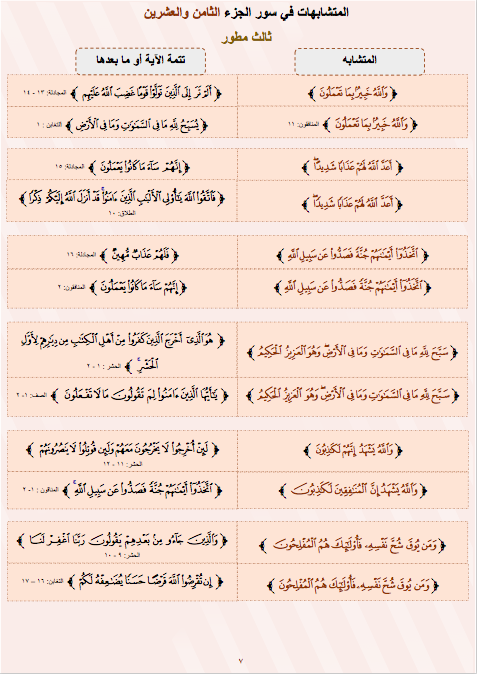 المتشابهات في سور الجزء الثامن والعشرين
ثالث مطور
المتشابه
تتمة الآية أو ما بعدها
﴿ وَاللَّهُ خَبِيرٌ بِمَا تَعْمَلُونَ ﴾
﴿ أَلَمْ تَرَ إِلَى الَّذِينَ تَوَلَّوْا قَوْمًا غَضِبَ اللَّهُ عَلَيْهِم ﴾ المجادلة: ١٣ - ١٤
﴿ وَاللَّهُ خَبِيرٌ بِمَا تَعْمَلُونَ ﴾ المنافقون: ١١
﴿ يُسَبِّحُ لِلَّهِ مَا فِي السَّمَاوَاتِ وَمَا فِي الْأَرْضِ ﴾ التغابن: ١
﴿ أَعَدَّ اللَّهُ لَهُمْ عَذَابًا شَدِيدًا ﴾
﴿ إِنَّهُمْ سَاءَ مَا كَانُوا يَعْمَلُونَ ﴾ المجادلة: ١٥
﴿ أَعَدَّ اللَّهُ لَهُمْ عَذَابًا شَدِيدًا ﴾
﴿ فَاتَّقُوا اللَّهَ يَا أُولِي الْأَلْبَابِ الَّذِينَ آمَنُوا قَدْ أَنزَلَ اللَّهُ إِلَيْكُمْ ذِكْرًا ﴾
الطلاق: ١٠
﴿ اتَّخَذُوا أَيْمَانَهُمْ جُنَّةً فَصَدُّوا عَن سَبِيلِ اللَّهِ ﴾
﴿ فَلَهُمْ عَذَابٌ مُّهِينٌ ﴾ المجادلة: ١٦
﴿ اتَّخَذُوا أَيْمَانَهُمْ جُنَّةً فَصَدُّوا عَن سَبِيلِ اللَّهِ ﴾
﴿ إِنَّهُمْ سَاءَ مَا كَانُوا يَعْمَلُونَ ﴾ المنافقون: ٢
﴿ سَبَّحَ لِلَّهِ مَا فِي السَّمَاوَاتِ وَمَا فِي الْأَرْضِ وَهُوَ الْعَزِيزُ الْحَكِيمُ ﴾
﴿ هُوَ الَّذِي أَخْرَجَ الَّذِينَ كَفَرُوا مِنْ أَهْلِ الْكِتَابِ مِن دِيَارِهِمْ لِأَوَّلِ
الْحَشْرِ ﴾ الحشر: ١ - ٢
﴿ سَبَّحَ لِلَّهِ مَا فِي السَّمَاوَاتِ وَمَا فِي الْأَرْضِ وَهُوَ الْعَزِيزُ الْحَكِيمُ ﴾
﴿ يَا أَيُّهَا الَّذِينَ آمَنُوا لِمَ تَقُولُونَ مَا لَا تَفْعَلُونَ ﴾ الصف: ١- ٢
﴿ وَاللَّهُ يَشْهَدُ إِنَّهُمْ لَكَاذِبُونَ ﴾
﴿ لَئِنْ أُخْرِجُوا لَا يَخْرُجُونَ مَعَهُمْ وَلَئِن قُوتِلُوا لَا يَنصُرُونَهُمْ ﴾
الحشر: ١١ - ١٢
﴿ وَاللَّهُ يَشْهَدُ إِنَّ الْمُنَافِقِينَ لَكَاذِبُونَ ﴾
﴿ اتَّخَذُوا أَيْمَانَهُمْ جُنَّةً فَصَدُّوا عَن سَبِيلِ اللَّهِ ﴾ المنافقون : ١- ٢
﴿ وَمَن يُوقَ شُحَّ نَفْسِهِ فَأُولَٰئِكَ هُمُ الْمُفْلِحُونَ ﴾
﴿ وَالَّذِينَ جَاءُوا مِن بَعْدِهِمْ يَقُولُونَ رَبَّنَا اغْفِرْ لَنَا ﴾
الحشر: ٩ - ١٠
﴿ وَمَن يُوقَ شُحَّ نَفْسِهِ فَأُولَٰئِكَ هُمُ الْمُفْلِحُونَ ﴾
﴿ إِن تُقْرِضُوا اللَّهَ قَرْضًا حَسَنًا يُضَاعِفْهُ لَكُمْ ﴾ التغابن: ١٦ – ١٧
٧